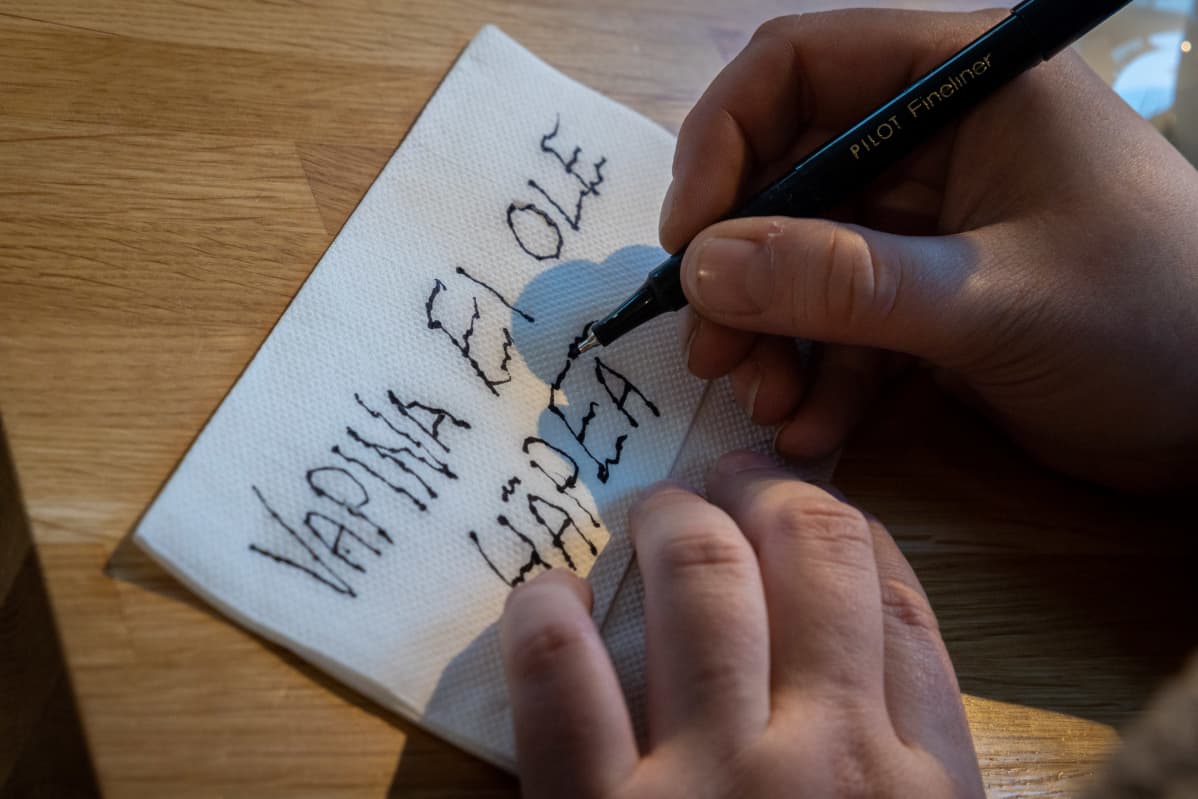 VAPINA EI OLE
HÄPEA
PILOT Fineliner